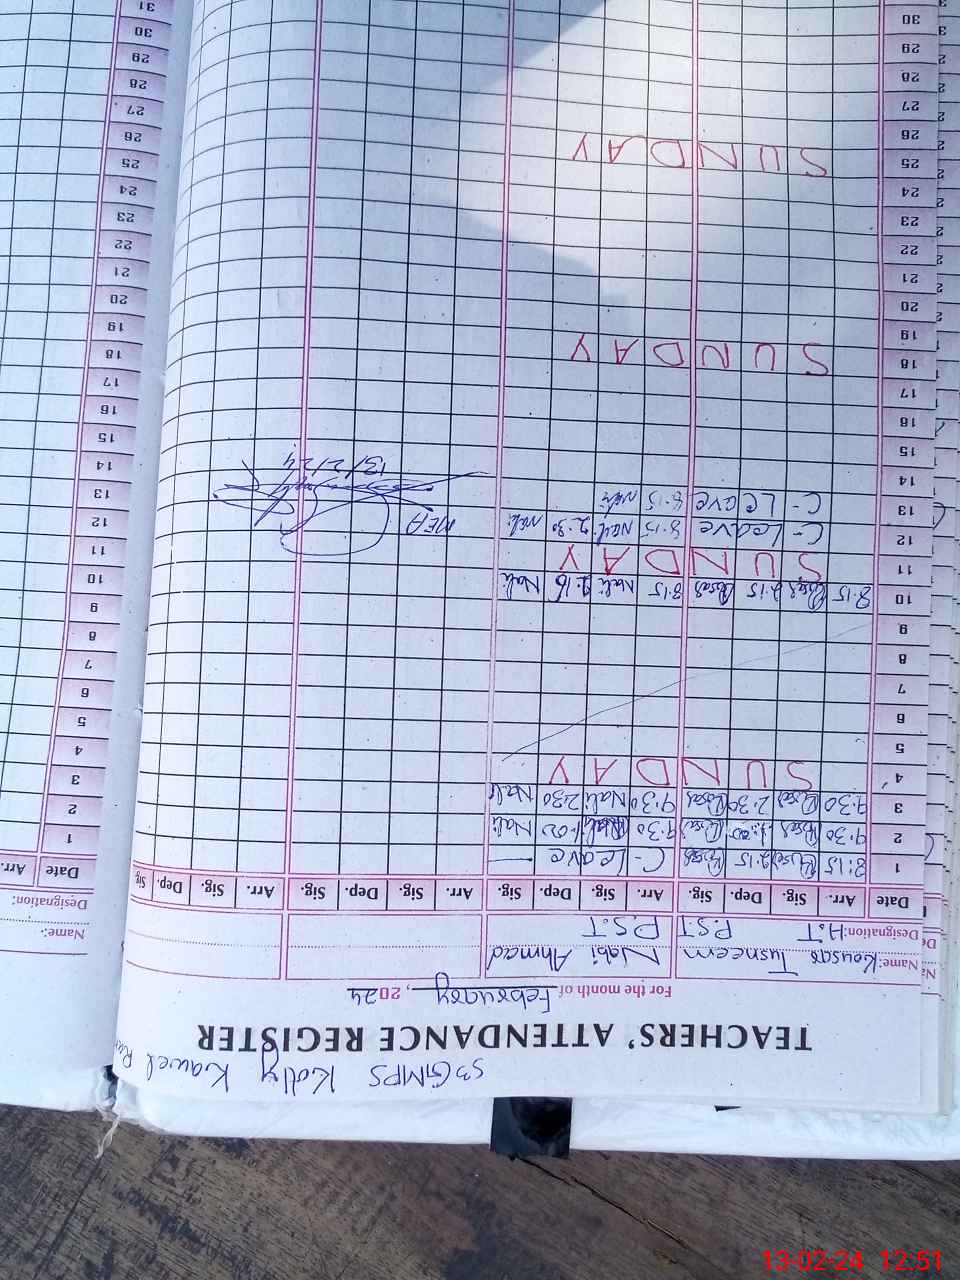 GMPS Kotly Kawel
TEACHERS' ATTENDANCE REGISTER
For the month of February, 2024
Name: Kousar Tusneem Nabi Ahmed
Designation: H.T P.S.T P.S.T
Date Arr. Sig. Dep. Sig. Arr. Sig. Dep. Sig. Arr. Sig. Dep. Sig. Arr. Sig. Dep. Sig.
1 8:15 2:15 C- Leave
2 9:30 9:30 1:00 Nali
3 9:30 2:30 9:30 Nali 2:30 Nali
4 SUNDAY
5
6
7
8
9
10 8:15 2:15 8:15 Nali 2:15 Nali
11 SUNDAY
12 C- Leave 8:15 Nali 2:30 Nali MEA
13 C- Leave 8:15 Nali
14 13/2/24
15
16
17
18 SUNDAY
19
20
21
22
23
24
25 SUNDAY
26
27
28
29
30
Name:
Designation:
Date Arr.
1
2
3
4
5
6
7
8
9
10
11
12
13
14
15
16
17
18
19
20
21
22
23
24
25
26
27
28
29
30
31
13-02-24 12:51